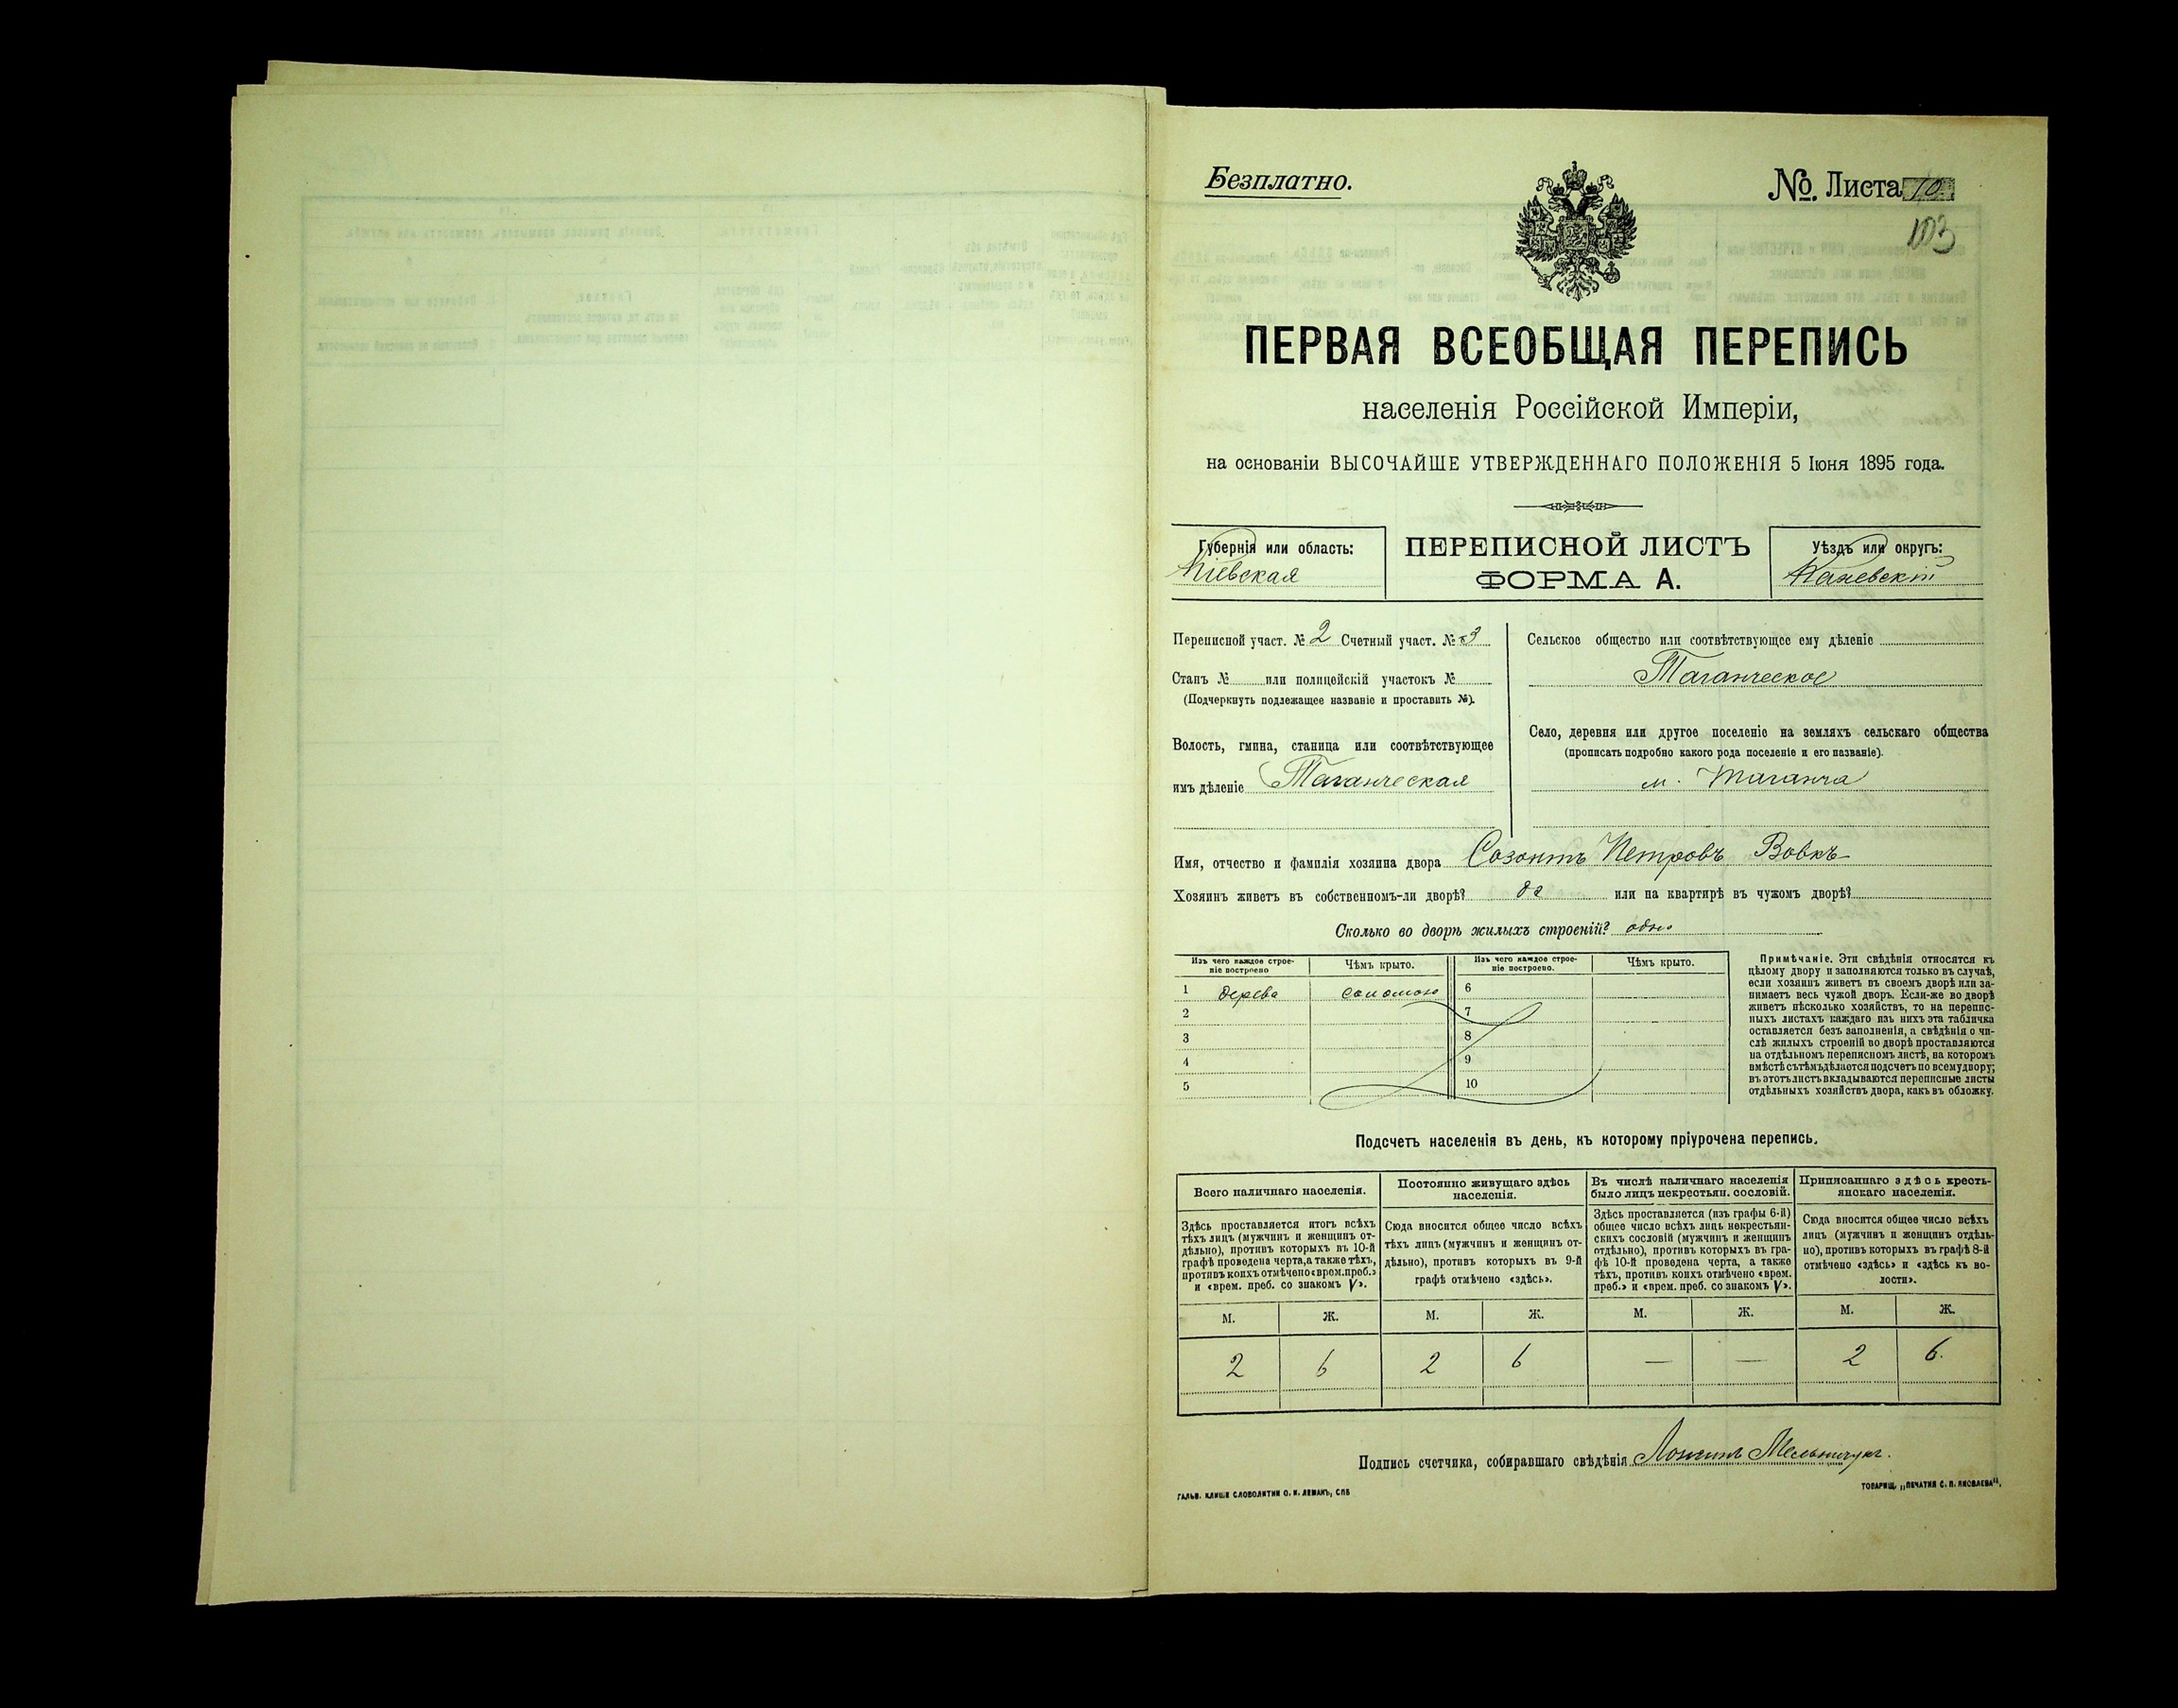 Безплатно.
№ Листа 10
103
ПЕРВАЯ ВСЕОБЩАЯ ПЕРЕПИСЬ
населенія Россійской Имперіи,
на основаніи ВЫСОЧАЙШЕ УТВЕРЖДЕННАГО ПОЛОЖЕНІЯ 5 Іюня 1895 года.
Губернія или область:
Кіевская
ПЕРЕПИСНОЙ ЛИСТЪ
ФОРМА А.
Уѣздъ или округъ:
Каневскій
Переписной участ. № 2 Счетный участ. № 3
Станъ № или полицейскій участокъ №
(Подчеркнуть подлежащее названіе и проставить №).
Волость, гмина, станица или соотвѣтствующее
имъ дѣленіе Таганческая
Сельское общество или соотвѣтствующее ему дѣленіе
Таганческое
Село, деревня или другое поселеніе на земляхъ сельскаго общества
(прописать подробно какого рода поселеніе и его названіе).
м. Таганча
Имя, отчество и фамилія хозяина двора Созонтъ Петровъ Вовкъ
Хозяинъ живетъ въ собственномъ-ли дворѣ? да или на квартирѣ въ чужомъ дворѣ?
Сколько во дворѣ жилыхъ строеній? одно
Изъ чего каждое строе-
ніе построено
Чѣмъ крыто.
Изъ чего каждое строе-
ніе построено.
Чѣмъ крыто.
1 дерева соломою 6
2 7
3 8
4 9
5 10
Примѣчаніе. Эти свѣдѣнія относятся къ
цѣлому двору и заполняются только въ случаѣ,
если хозяинъ живетъ въ своемъ дворѣ или за-
нимаетъ весь чужой дворъ. Если-же во дворѣ
живетъ нѣсколько хозяйствъ, то на перепис-
ныхъ листахъ каждаго изъ нихъ эта табличка
оставляется безъ заполненія, а свѣдѣнія о чи-
слѣ жилыхъ строеній во дворѣ проставляются
на отдѣльномъ переписномъ листѣ, на которомъ
вмѣстѣ съ тѣмъ дѣлается подсчетъ по всему двору;
въ этотъ листъ вкладываются переписные листы
отдѣльныхъ хозяйствъ двора, какъ въ обложку.
Подсчетъ населенія въ день, къ которому пріурочена перепись.
Всего наличнаго населенія.
Здѣсь проставляется итогъ всѣхъ
тѣхъ лицъ (мужчинъ и женщинъ от-
дѣльно), противъ которыхъ въ 10-й
графѣ проведена черта, а также тѣхъ,
противъ коихъ отмѣчено «врем. преб.»
и «врем. преб. со знакомъ V».
Постоянно живущаго здѣсь
населенія.
Сюда вносится общее число всѣхъ
тѣхъ лицъ (мужчинъ и женщинъ от-
дѣльно), противъ которыхъ въ 9-й
графѣ отмѣчено «здѣсь».
Въ числѣ наличнаго населенія
было лицъ некрестьян. сословій.
Здѣсь проставляется (изъ графы 6-й)
общее число всѣхъ лицъ некрестьян-
скихъ сословій (мужчинъ и женщинъ
отдѣльно), противъ которыхъ въ гра-
фѣ 10-й проведена черта, а также
тѣхъ, противъ коихъ отмѣчено «врем.
преб.» и «врем. преб. со знакомъ V».
Приписаннаго здѣсь кресть-
янскаго населенія.
Сюда вносится общее число всѣхъ
лицъ (мужчинъ и женщинъ отдѣль-
но), противъ которыхъ въ графѣ 8-й
отмѣчено «здѣсь» и «здѣсь къ во-
лости».
М. Ж. М. Ж. М. Ж. М. Ж.
2 6 2 6 — — 2 6.
Подпись счетчика, собиравшаго свѣдѣнія Логинъ Мельничукъ.
ГАЛЬВ. КЛИШЕ СЛОВОЛИТНИ О. И. ЛЕМАНЪ, СПБ
ТОВАРИЩ. „ПЕЧАТНЯ С. П. ЯКОВЛЕВА“.